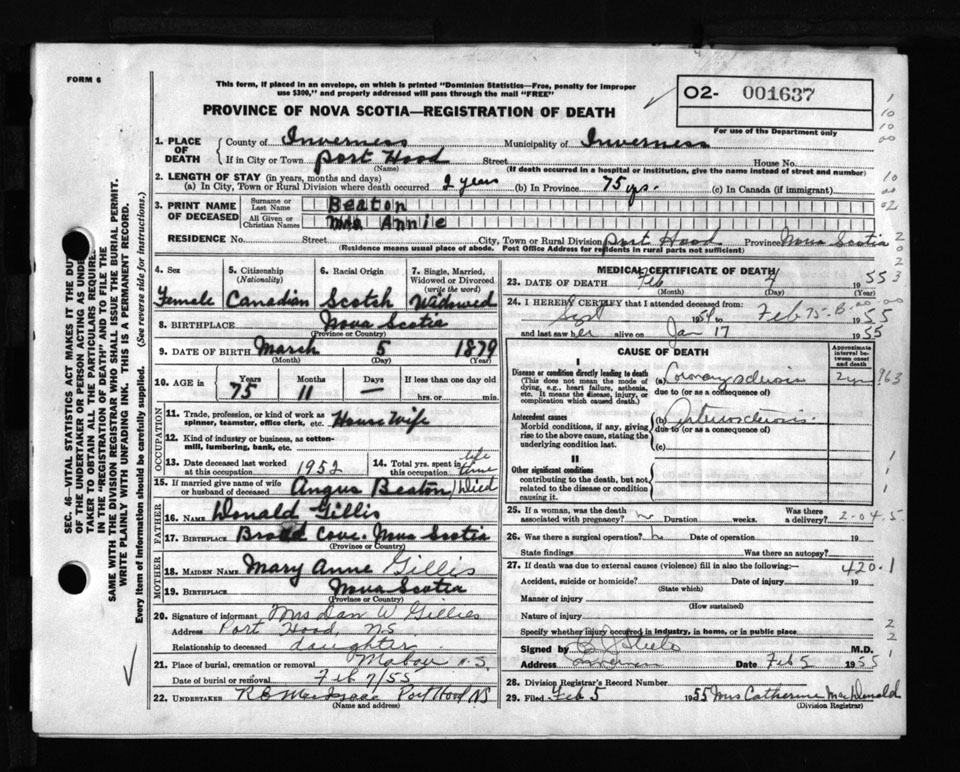 FORM 6
This form, if placed in an envelope, on which is printed "Dominion Statistics—Free, penalty for improper
use $300," and properly addressed will pass through the mail "FREE"
PROVINCE OF NOVA SCOTIA—REGISTRATION OF DEATH
O2- 001637
For use of the Department only
1. PLACE OF DEATH
County of Inverness Municipality of Inverness
If in City or Town Port Hood Street House No.
(Name) (If death occurred in a hospital or institution, give its name instead of street and number)
2. LENGTH OF STAY (in years, months and days)
(a) In City, Town or Rural Division where death occurred 2 years (b) In Province 75 yrs. (c) In Canada (if immigrant)
3. PRINT NAME OF DECEASED
Surname or Last Name Beaton
All Given or Christian Names Mrs Annie
RESIDENCE No. Street City, Town or Rural Division Port Hood Province Nova Scotia
(Residence means usual place of abode. Post Office Address for residents in rural parts not sufficient)
4. Sex 5. Citizenship (Nationality) 6. Racial Origin 7. Single, Married, Widowed or Divorced (write the word)
Female Canadian Scotch Widowed
8. BIRTHPLACE Nova Scotia
(Province or Country)
9. DATE OF BIRTH March 5 1879
(Month) (Day) (Year)
10. AGE in Years Months Days If less than one day old
75 11 hrs. or min.
OCCUPATION
11. Trade, profession, or kind of work as
spinner, teamster, office clerk, etc. House Wife
12. Kind of industry or business, as cotton-
mill, lumbering, bank, etc.
13. Date deceased last worked at this occupation 1952 14. Total yrs. spent in this occupation life time
15. If married give name of wife or husband of deceased Angus Beaton / Died
FATHER
16. NAME Donald Gillis
17. BIRTHPLACE Broad Cove. Nova Scotia
(Province or Country)
MOTHER
18. MAIDEN NAME Mary Anne Gillis
19. BIRTHPLACE Nova Scotia
(Province or Country)
20. Signature of informant Mrs Dan W Gillies
Address Port Hood, NS
Relationship to deceased daughter
21. Place of burial, cremation or removal Mabou N.S.
Date of burial or removal Feb 7/55
22. UNDERTAKER R.E. MacIsaac Port Hood NS
(Name and address)
MEDICAL CERTIFICATE OF DEATH
23. DATE OF DEATH Feb 4 1955
(Month) (Day) (Year)
24. I HEREBY CERTIFY that I attended deceased from
Sept 1954 to Feb 1955
and last saw her alive on Jan 17 1955
CAUSE OF DEATH
Approximate interval between onset and death
I
Disease or condition directly leading to death (a) Coronary sclerosis 2 yrs
(This does not mean the mode of dying, e.g., heart failure, asthenia, etc. It means the disease, injury, or complication which caused death.)
due to (or as a consequence of)
Antecedent causes (b) Arteriosclerosis
Morbid conditions, if any, giving rise to the above cause, stating the underlying condition last.
due to (or as a consequence of)
(c)
II
Other significant conditions
contributing to the death, but not related to the disease or condition causing it.
25. If a woman, was the death associated with pregnancy? no Duration weeks. Was there a delivery? 2-04.5
26. Was there a surgical operation? no Date of operation 19
State findings Was there an autopsy?
27. If death was due to external causes (violence) fill in also the following:— 420.1
Accident, suicide or homicide? Date of injury 19
(State which)
Manner of injury
(How sustained)
Nature of injury
Specify whether injury occurred in industry, in home, or in public place
Signed by M.D.
Address Inverness Date Feb 5 1955
28. Division Registrar's Record Number
29. Filed Feb 5 1955 Mrs Catherine MacDonald
(Division Registrar)
SEC. 46—VITAL STATISTICS ACT MAKES IT THE DUTY
OF THE UNDERTAKER OR PERSON ACTING AS UNDER-
TAKER TO OBTAIN ALL THE PARTICULARS REQUIRED
IN THE "REGISTRATION OF DEATH" AND TO FILE THE
SAME WITH THE DIVISION REGISTRAR WHO SHALL ISSUE THE BURIAL PERMIT.
WRITE PLAINLY WITH UNFADING INK. THIS IS A PERMANENT RECORD.
Every item of information should be carefully supplied. (See reverse side for instructions.)